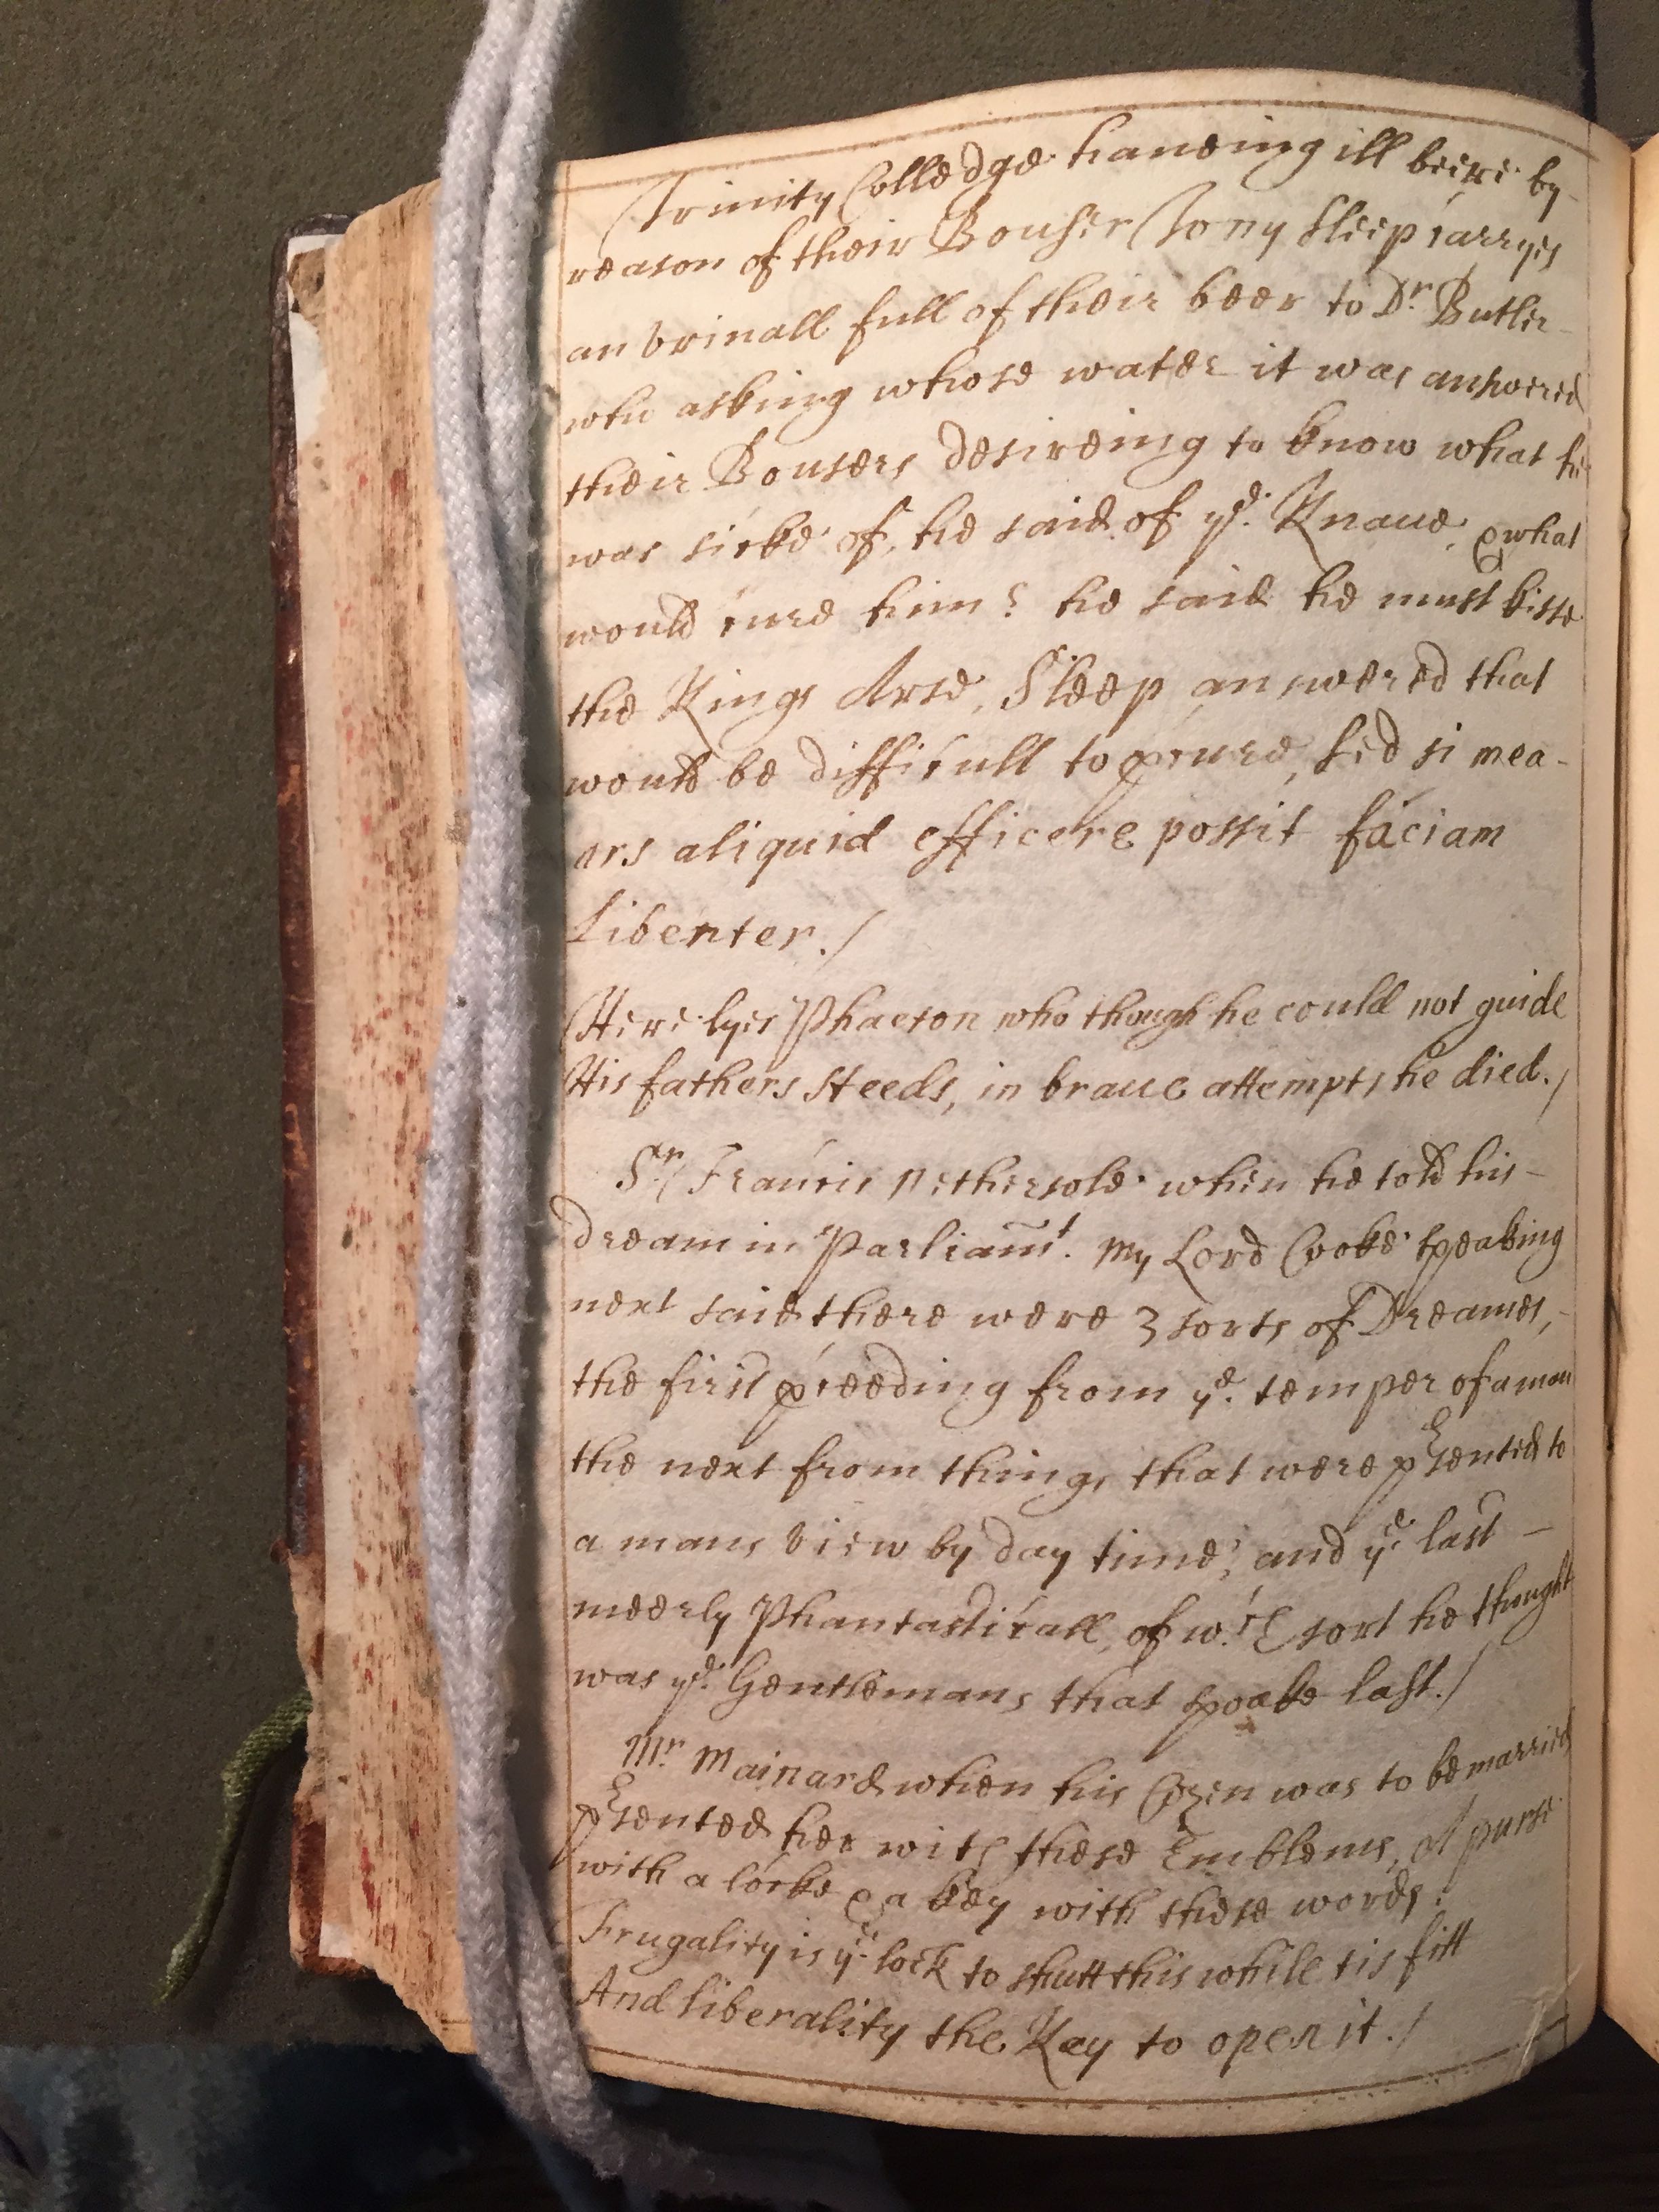 Trinity Colledge haueing ill beere by
reason of their Bouser Tony Sleep carryes
an vrinall full of their beer to Dr. Butler
who asking whose water it was answered
their Bousers desireing to know what he
was sicke of, he said of ye. Knaue, & what
would cure him? he said he must kisse
the Kings Arse, Sleep answered that
would be difficult to ꝓcure, sed si mea-
ars aliquid efficere possit faciam
Libenter./
Here lyes Phaeton who though he could not guide
His fathers Steeds, in braue attempts he died./
Sr. Francis Nethersole when he told his-
dream in Parliamt. My Lord Cooke speaking
next said there were 3 sorts of Dreames,-
the first ꝓceeding from ye. temper of a man
the next from things that were psented to
a mans view by day time, and ye last -
meerly Phantasticall, of wch sort he thought
was ye. Gentlemans that spoake last./
Mr. Mainard when his Cozen was to be married
psented her with these Emblems, A purse
with a locke & a key with these words.
Frugality is ye. lock to shutt this while tis fitt
And liberality the Kay to open it./